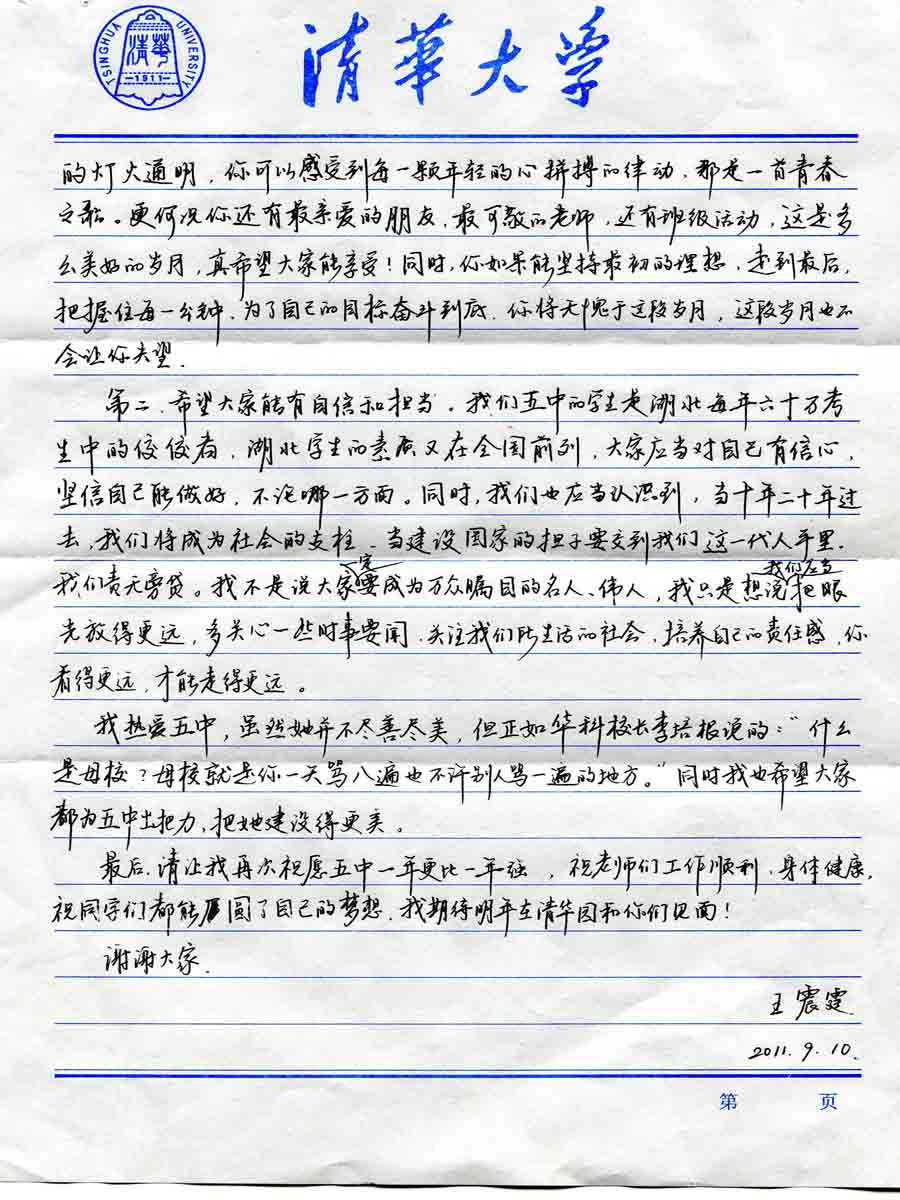 TSINGHUA UNIVERSITY
清華
1911
清華大学
的灯火通明，你可以感受到每一颗年轻的心拼搏的律动，那是一首青春
之歌。更何况你还有最亲爱的朋友，最可敬的老师，还有班级活动，这是多
么美好的岁月，真希望大家能享受！同时，你如果能坚持最初的理想，走到最后，
把握住每一分钟，为了自己的目标奋斗到底，你将无愧于这段岁月，这段岁月也不
会让你失望．
第二．希望大家能有自信和担当。我们五中的学生是湖北每年六十万考
生中的佼佼者，湖北学生的素质又在全国前列，大家应当对自己有信心，
坚信自己能做好，不论哪一方面。同时，我们也应当认识到，当十年二十年过
去，我们将成为社会的支柱，当建设国家的担子要交到我们这一代人手里．
我们责无旁贷。我不是说大家定要成为万众瞩目的名人、伟人，我只是想说我们应当把眼
光放得更远，多关心一些时事要闻，关注我们所生活的社会，培养自己的责任感，你
看得更远，才能走得更远。
我热爱五中，虽然她并不尽善尽美，但正如华科校长李培根说的：“什么
是母校？母校就是你一天骂八遍也不许别人骂一遍的地方。”同时我也希望大家
都为五中出把力，把她建设得更美。
最后，请让我再次祝愿五中一年更比一年强，祝老师们工作顺利，身体健康，
祝同学们都能圆了自己的梦想，我期待明年在清华园和你们见面！
谢谢大家．
王震霆
2011.9.10.
第 页